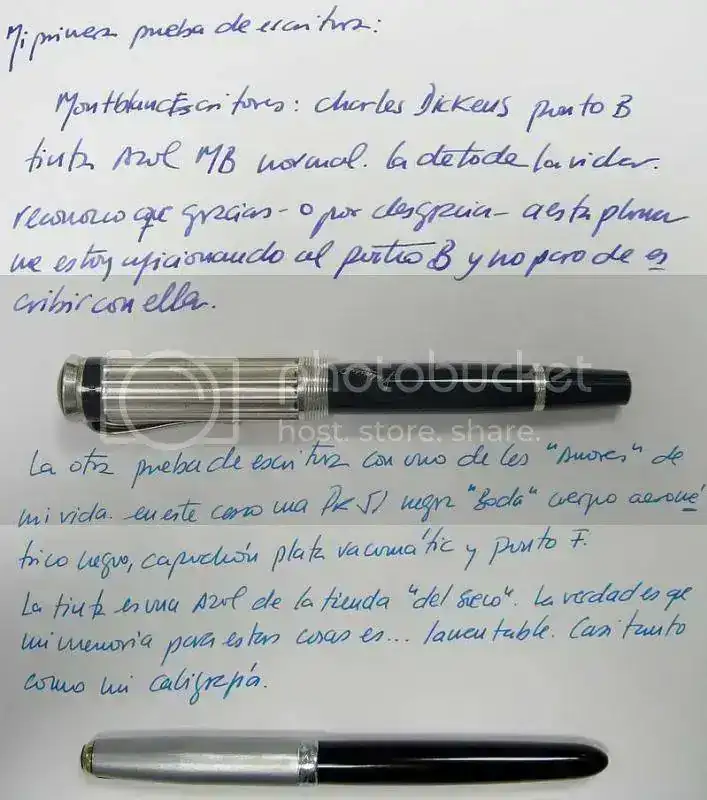 Mi primera prueba de escritura:
Montblanc Escritores: Charles Dickens punto B
tinta Azul MB normal. La de toda la vida.
reconozco que gracias - o por desgracia - a esta pluma
me estoy aficionando al punto B y no paro de es
cribir con ella.
photobucket
host. store. share.
La otra prueba de escritura con uno de los "Amores" de
mi vida. en este caso una PK 51 negra cuerpo
trico negro, capuchón plata vacumátic y punto F.
La tinta es una Azul de la tienda "del Sieco". La verdad es que
mi memoria para estas cosas es... lamentable. Casi tanto
como mi caligrafía.